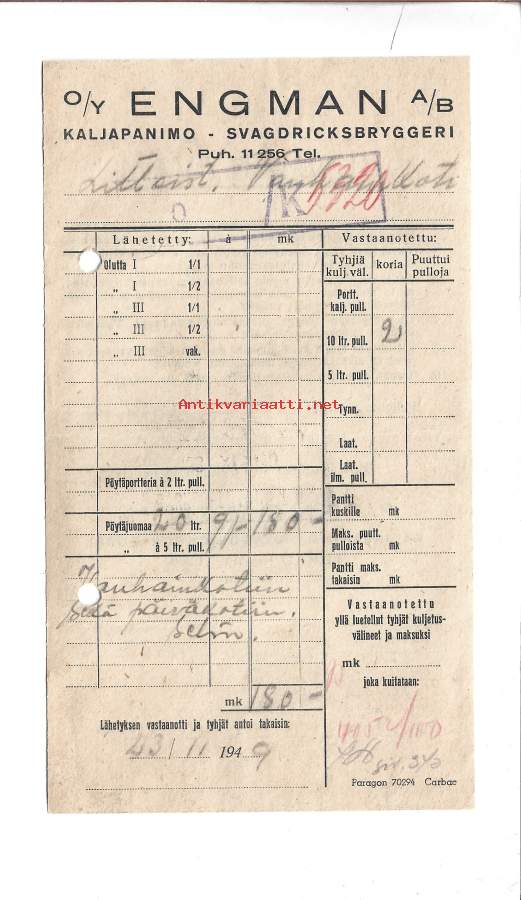 O/Y ENGMAN A/B
KALJAPANIMO - SVAGDRICKSBRYGGERI
Puh. 11 256 Tel.
K 5320
Lähetetty: à mk
Olutta I 1/1
„ I 1/2
„ III 1/1
„ III 1/2
„ III vak.
Pöytäportteria à 2 ltr. pull.
Pöytäjuomaa 20 ltr. 9/- 180-
„ à 5 ltr. pull.
Vanhainkotiin
sekä päiväkotiin.
mk 180-
Lähetyksen vastaanotti ja tyhjät antoi takaisin:
23/11 1949
Vastaanotettu:
Tyhjiä kulj. väl. koria Puuttui pulloja
Portt.
kalj. pull.
10 ltr. pull. 2
5 ltr. pull.
Tynn.
Laat.
Laat.
ilm. pull.
Pantti
kuskille mk
Maks. puutt.
pulloista mk
Pantti maks.
takaisin mk
Vastaanotettu
yllä luetellut tyhjät kuljetus-
välineet ja maksuksi
mk
joka kuitataan:
Paragon 70294 Carbac
Antikvariaatti.net